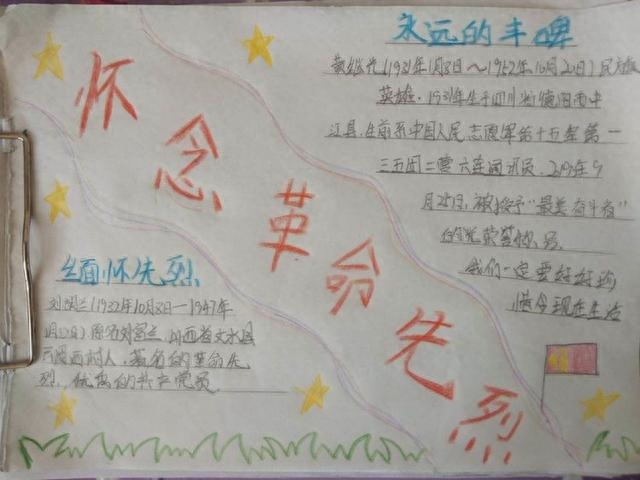 永远的丰碑
黄继光(1931年1月8日~1952年10月20日)民族
英雄.1931年生于四川省德阳市中
江县.生前系中国人民志愿军第十五军第一
三五团二营六连通讯员.2019年9
月25日,被授予"最美奋斗者"
我们一定要好好珍
惜今现在生活
怀念革命先烈
缅怀先烈
刘胡兰(1932年10月8日—1947年
1月12日)原名刘富兰,山西省文水县
云周西村人,著名的革命先
烈,优秀的共产党员